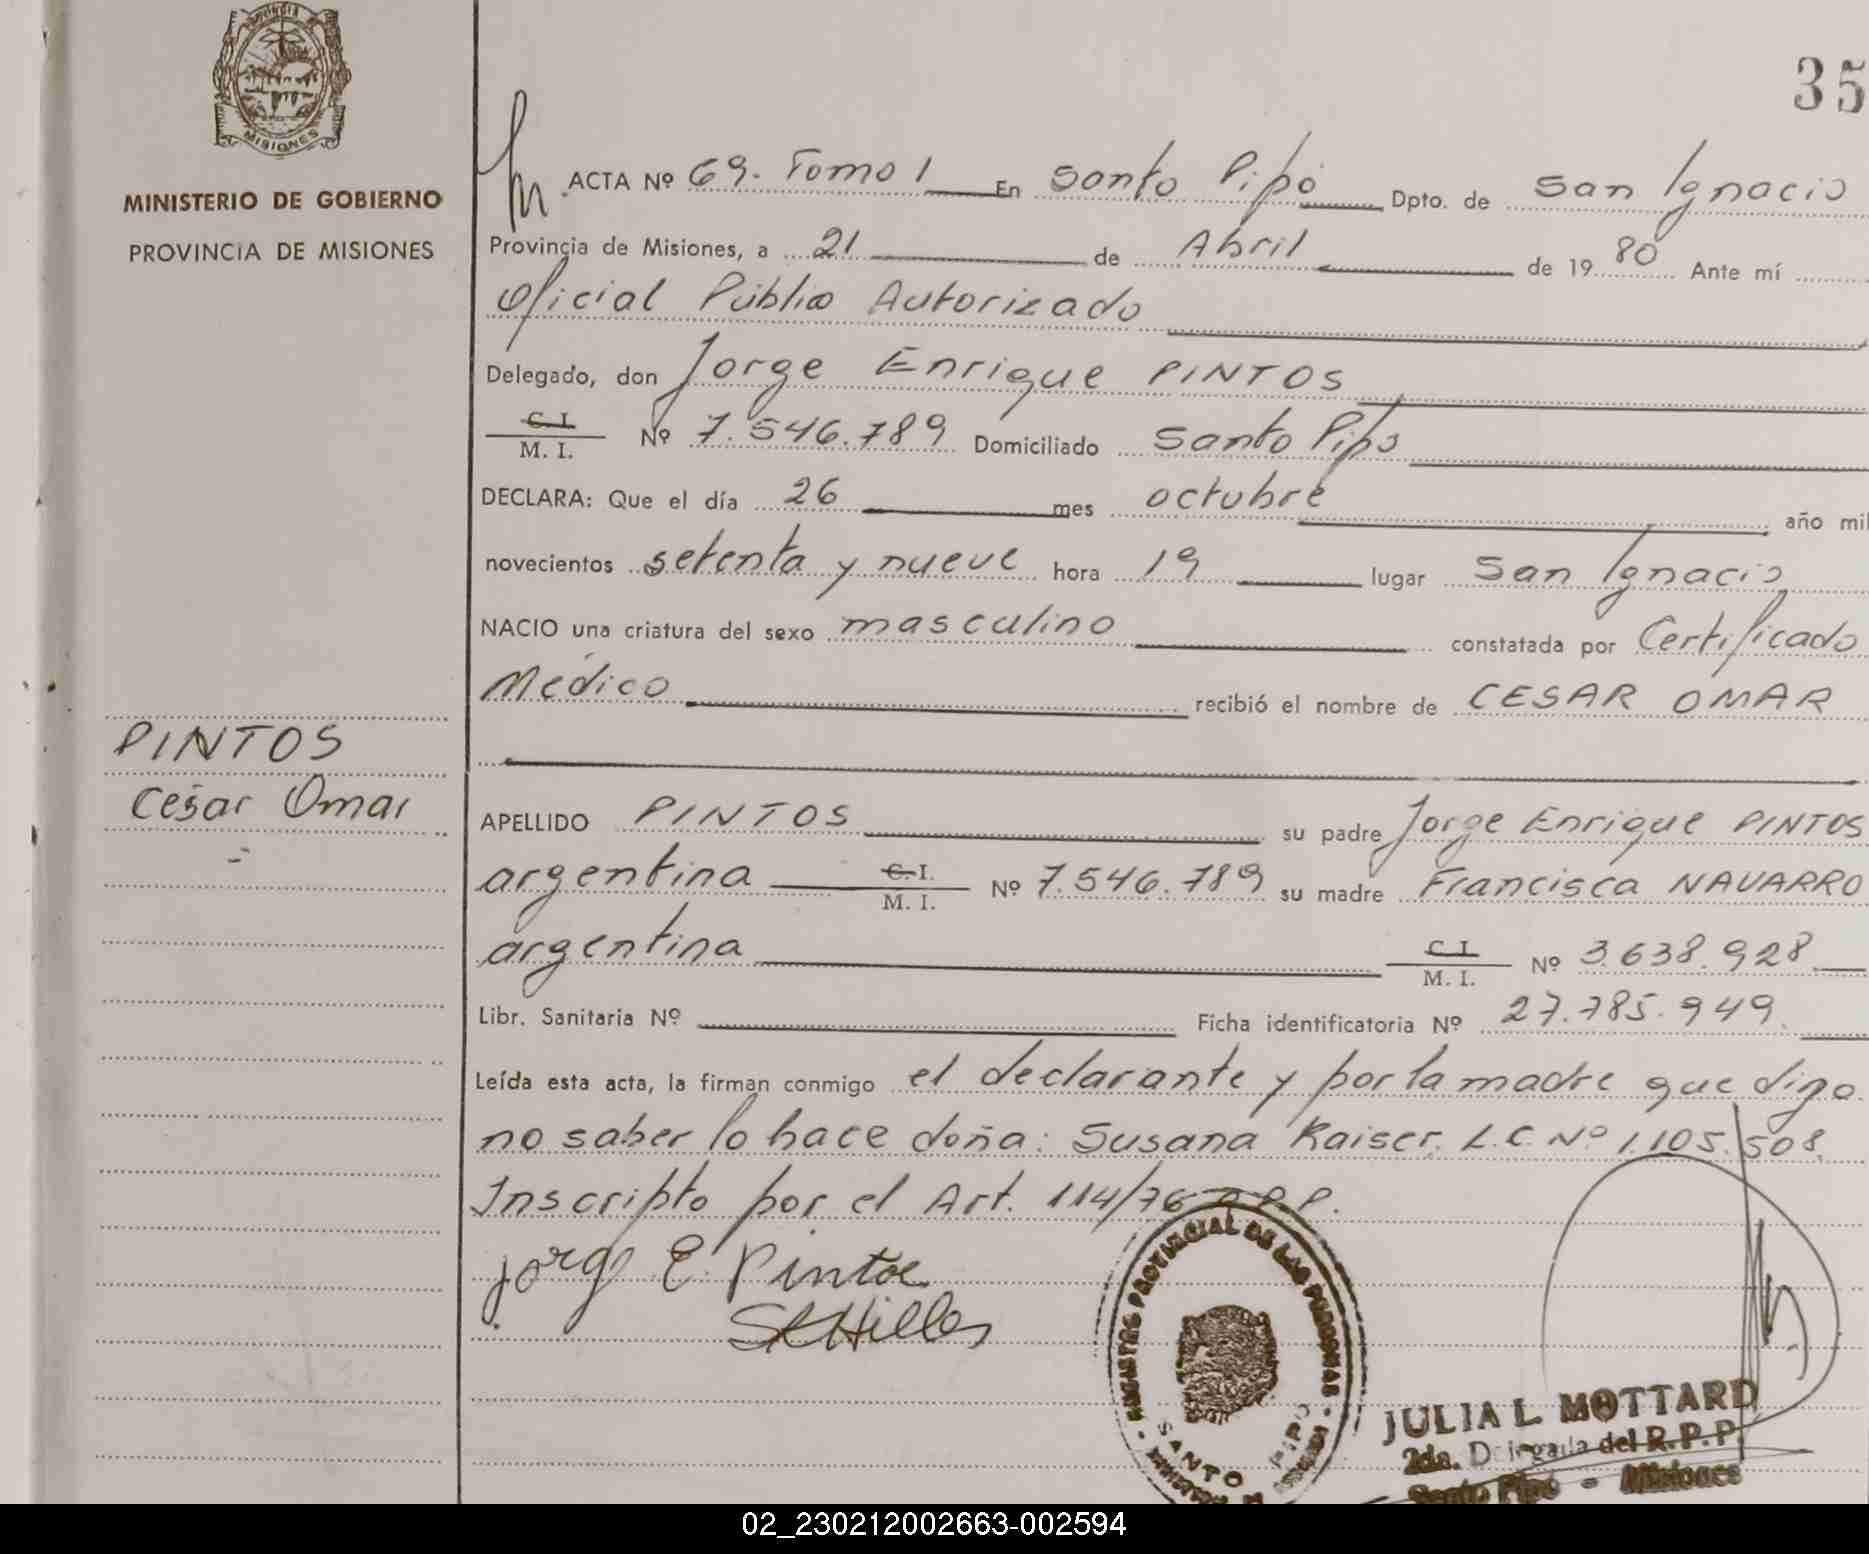 PROVINCIA
MISIONES
MINISTERIO DE GOBIERNO
PROVINCIA DE MISIONES
35
ACTA Nº 69. Tomo I En Santo Pipó Dpto. de San Ignacio
Provincia de Misiones, a 21 de Abril de 19 80 Ante mí
Oficial Público Autorizado
Delegado, don Jorge Enrique PINTOS
C. I.
M. I. Nº 7.546.789 Domiciliado Santo Pipó
DECLARA: Que el día 26 mes octubre año mil
novecientos setenta y nueve hora 19 lugar San Ignacio
NACIO una criatura del sexo masculino constatada por Certificado
Médico recibió el nombre de CESAR OMAR
PINTOS
César Omar
APELLIDO PINTOS su padre Jorge Enrique PINTOS
argentina C. I. M. I. Nº 7.546.789 su madre Francisca NAVARRO
argentina C. I. M. I. Nº 3.638.928
Libr. Sanitaria Nº Ficha identificatoria Nº 27.785.949
Leída esta acta, la firman conmigo el declarante y por la madre que digo
no saber lo hace doña: Susana Kaiser. L.C. Nº 1.105.508
Inscripto por el Art. 114/76 R.P.P.
Jorge E. Pintos
PROVINCIAL DE LAS PERSONAS
SANTO PIPO
JULIA L. MOTTARD
2da. Delegada del R.P.P.
Santo Pipó - Misiones
02_230212002663-002594